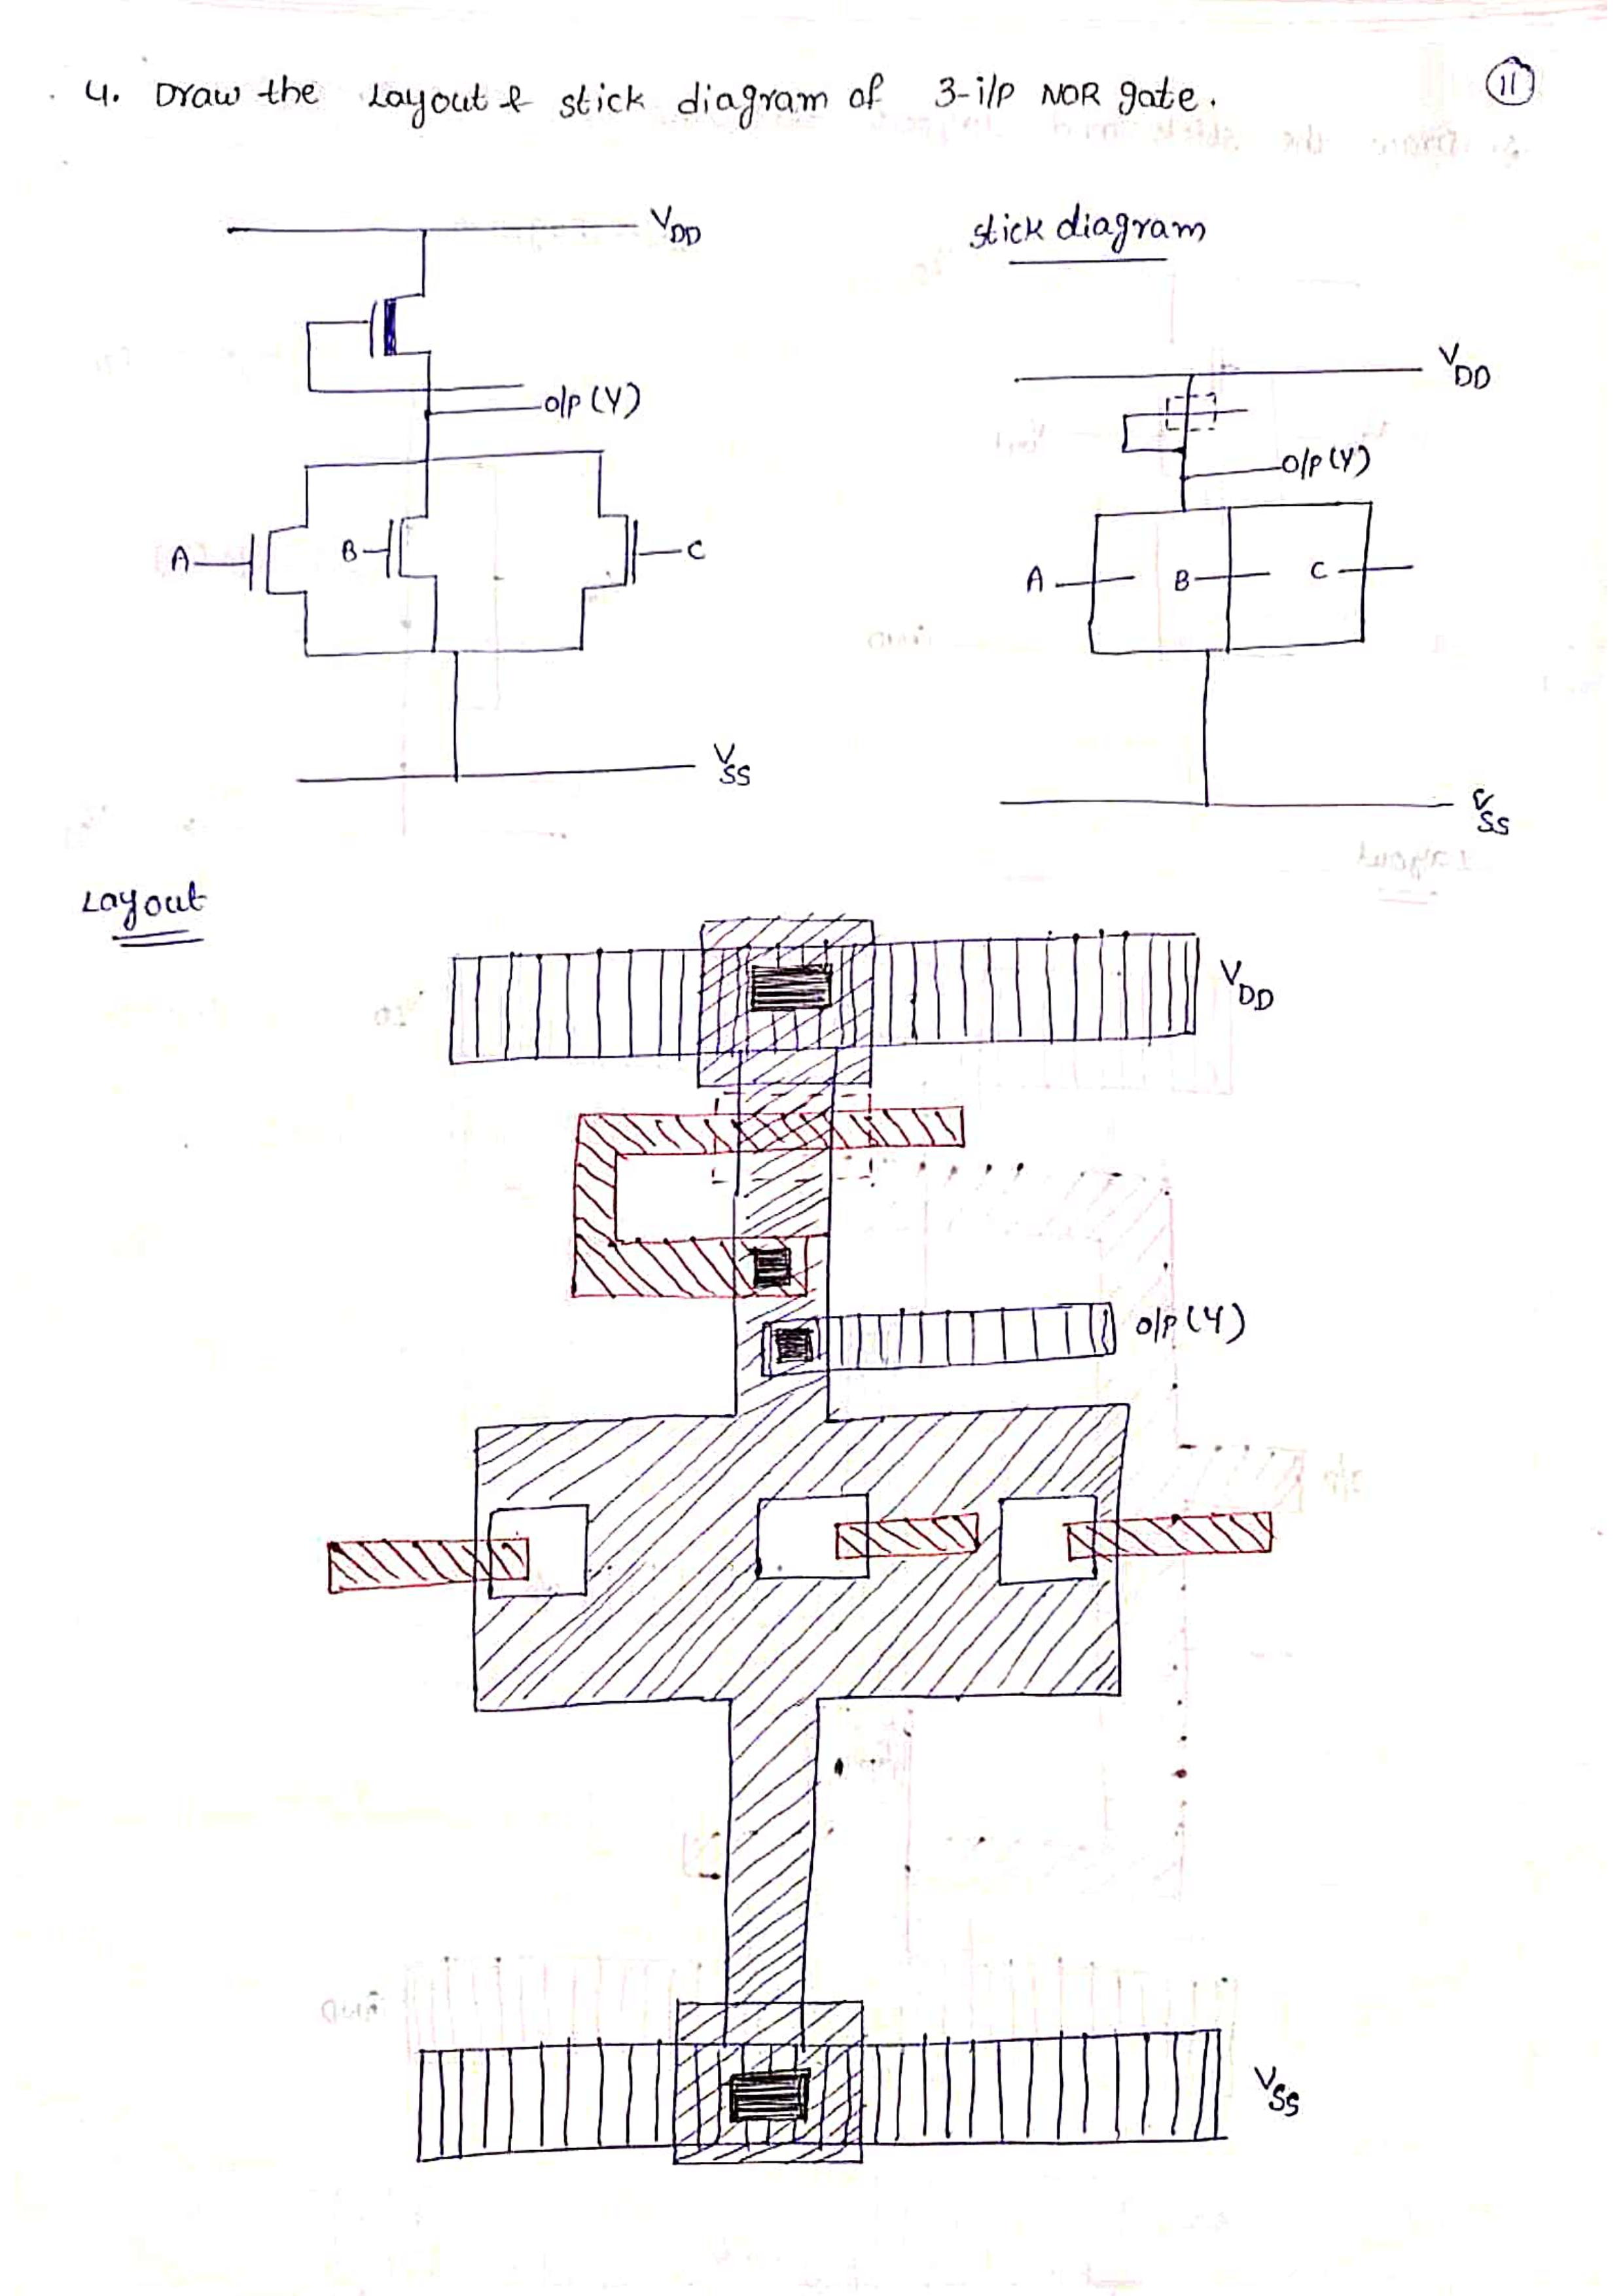 4. Draw the Layout & stick diagram of 3-i/p NOR gate.
11
VDD
o/p (Y)
A
B
C
VSS
stick diagram
VDD
o/p (Y)
A
B
C
VSS
Layout
VDD
o/p (Y)
VSS